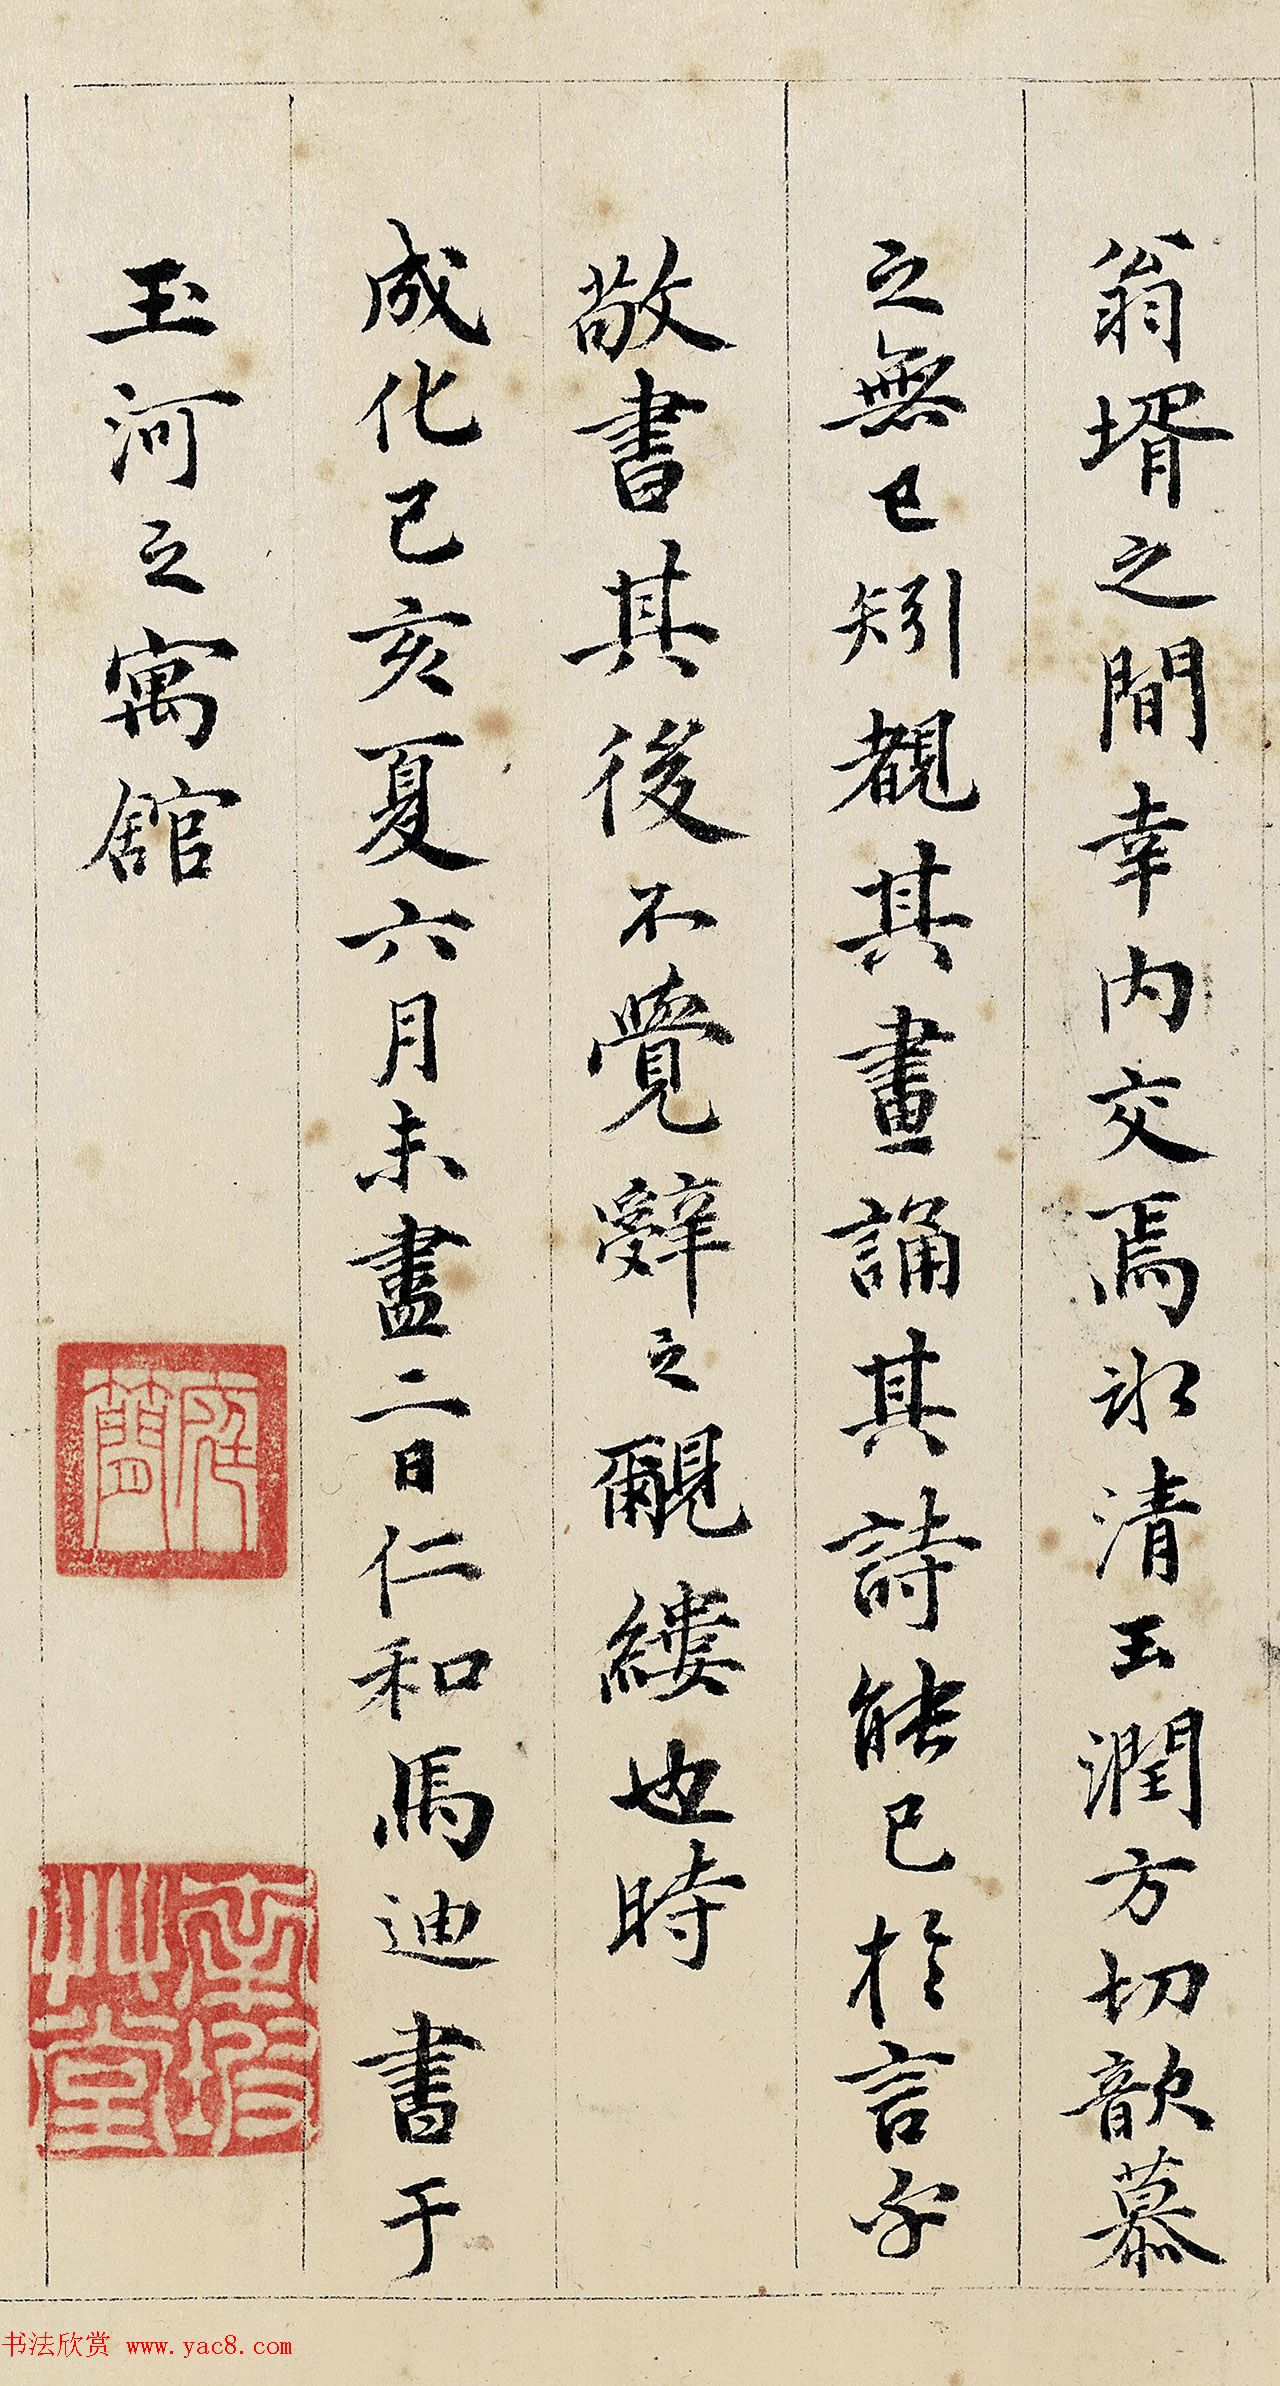 翁壻之間幸内交焉冰清玉潤方切歆慕
之無已矧覩其畫誦其詩能已於言乎
敬書其後不覺辭之覼縷也時
成化己亥夏六月未盡二日仁和馬迪書于
玉河之寓舘
南坡草堂
书法欣赏 www.yac8.com